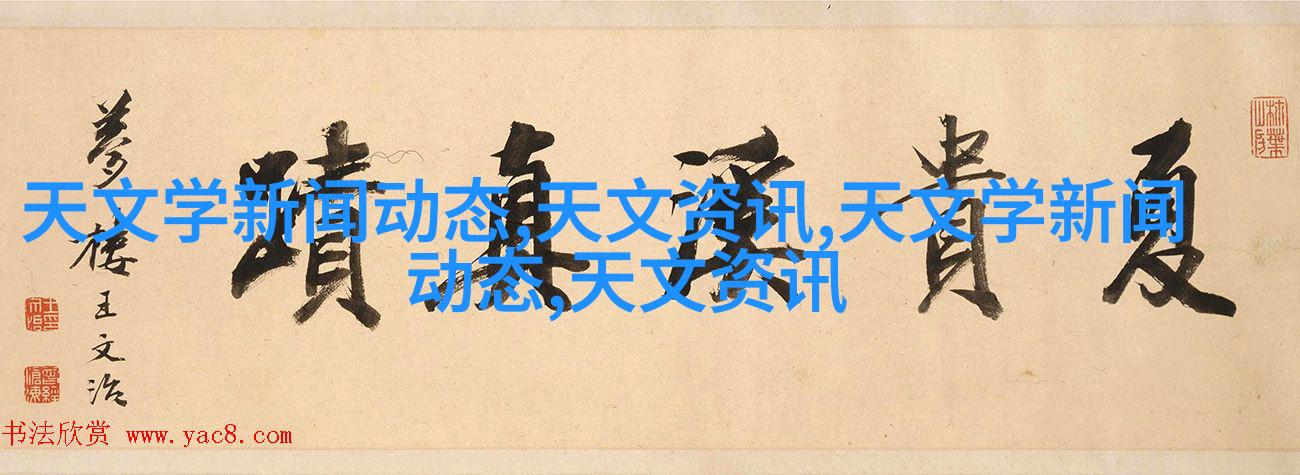 夏貴溪真蹟
夢樓王文治
天文学新闻动态,天文资讯,天文学新闻
动态,天文资讯
书法欣赏 www.yac8.com